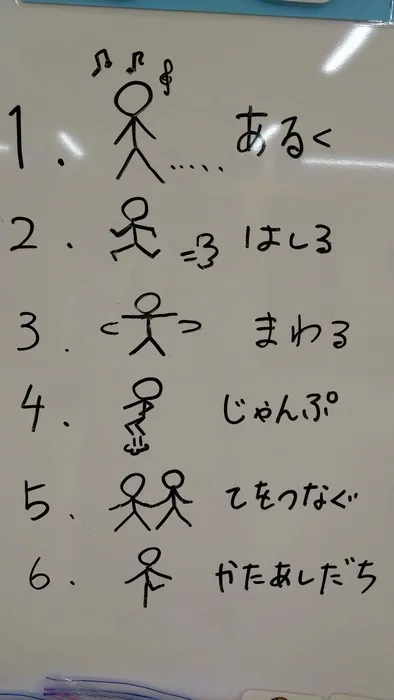 1. あるく
2. はしる
3. まわる
4. じゃんぷ
5. てをつなぐ
6. かたあしだち